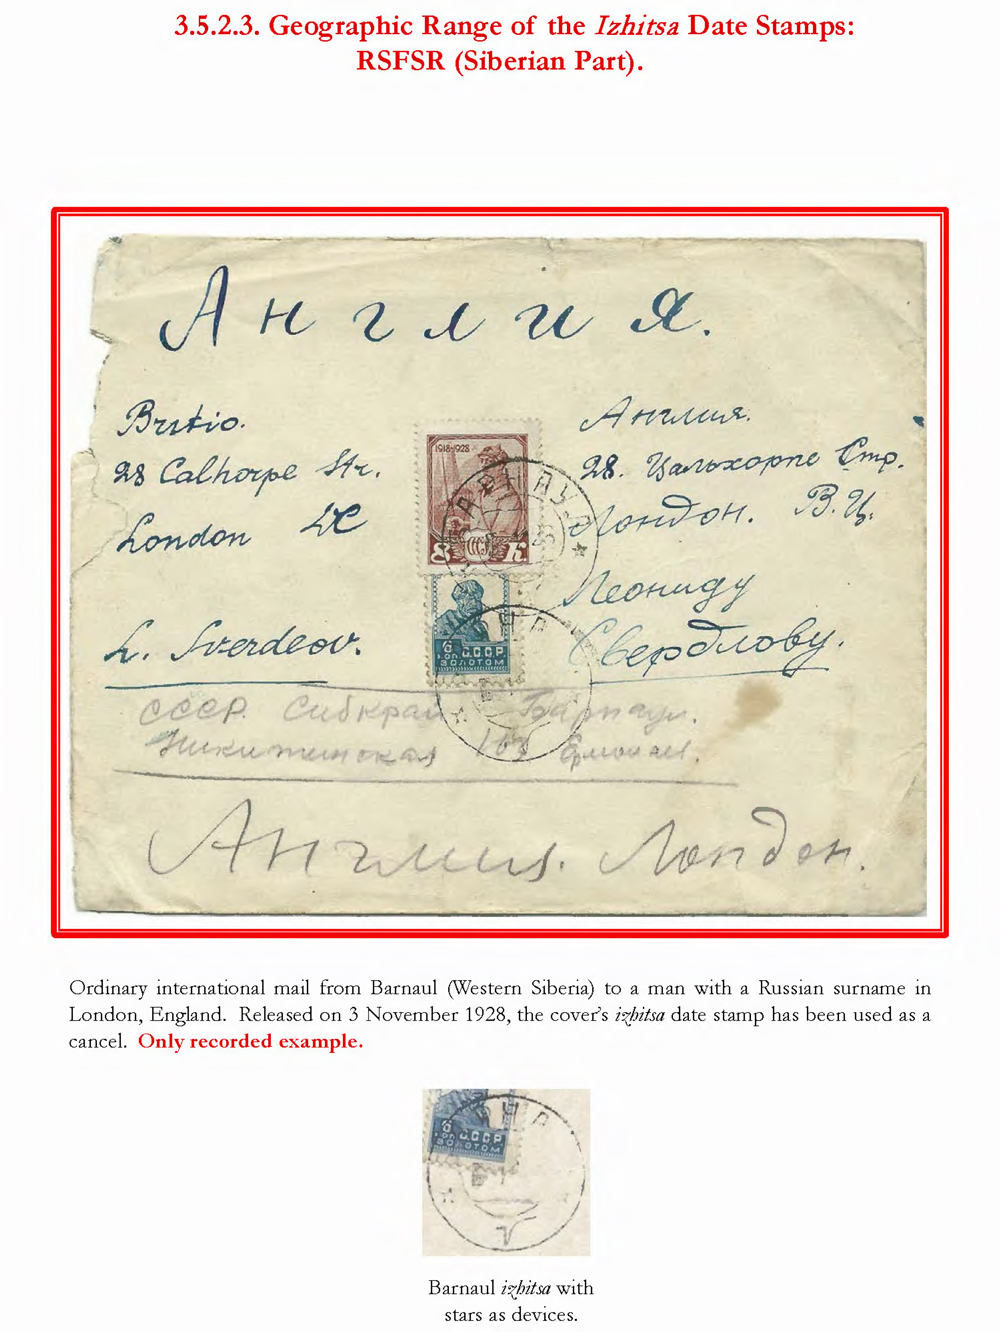 3.5.2.3. Geographic Range of the Izhitsa Date Stamps:
RSFSR (Siberian Part).
Англия.
Англия.
28 Calhorpe Str.
28. Цальхорпе Стр.
London
Лондон. В.Ц.
Леониду
Свердлову.
1918-1928
8 К.
БАРНАУЛ
6 СССР
КОП. ЗОЛОТОМ
СССР. Сибкрай Барнаул.
Никитинская
Англия. Лондон.
Ordinary international mail from Barnaul (Western Siberia) to a man with a Russian surname in
London, England. Released on 3 November 1928, the cover's izhitsa date stamp has been used as a
cancel. Only recorded example.
6 СССР
КОП. ЗОЛОТОМ
Barnaul izhitsa with
stars as devices.